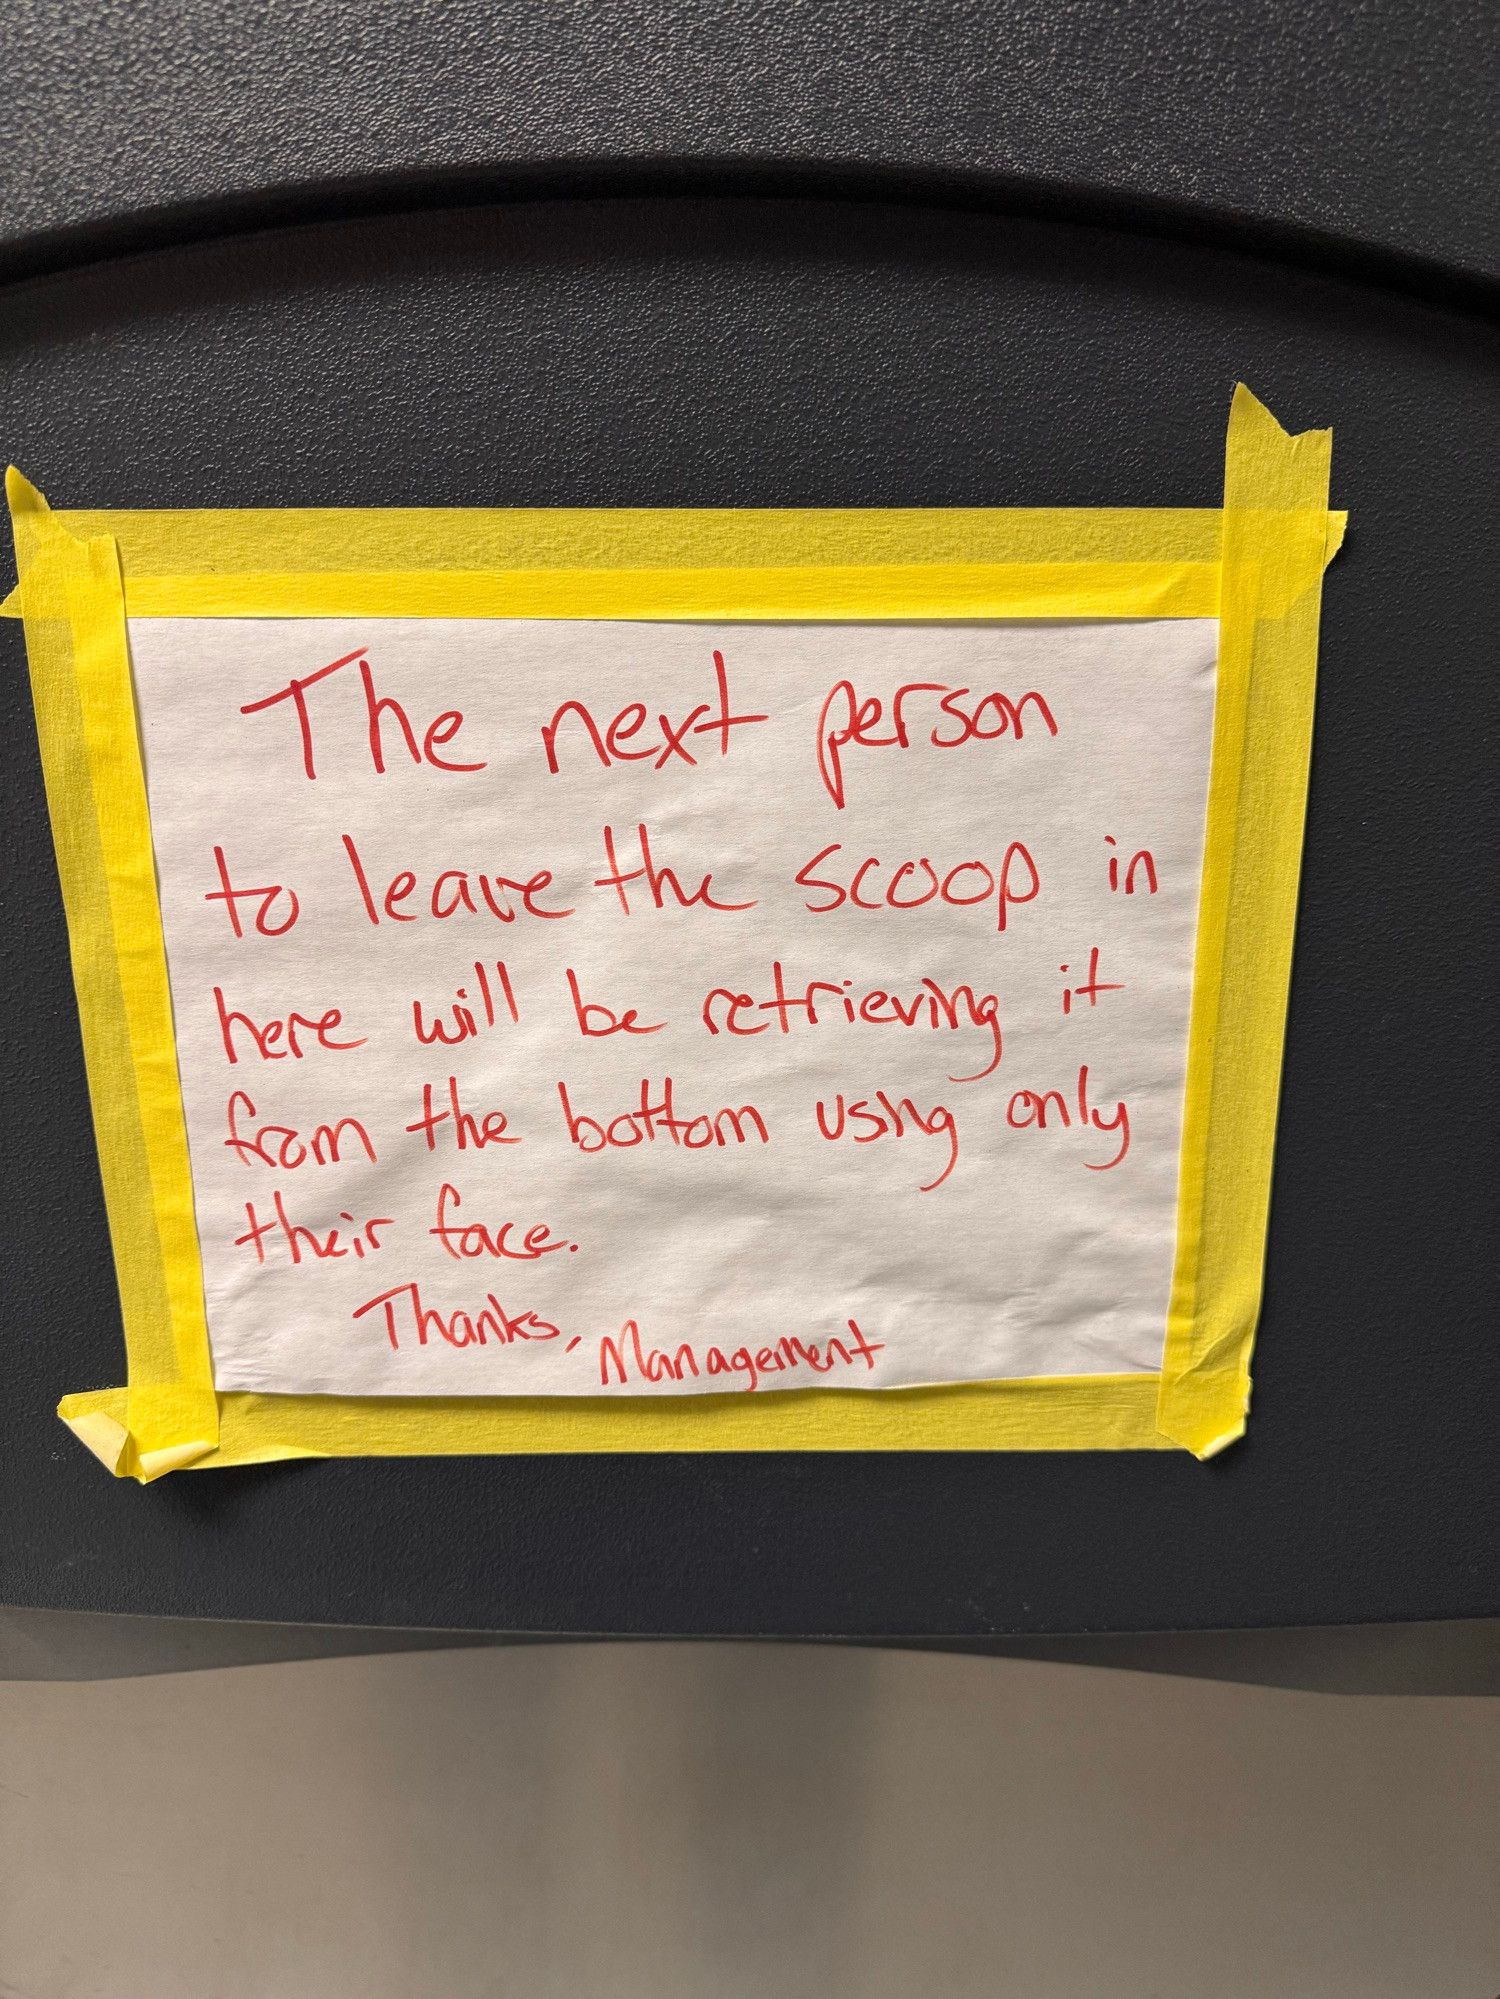 The next person
to leave the scoop in
here will be retrieving it
from the bottom using only
their face.
Thanks, Management